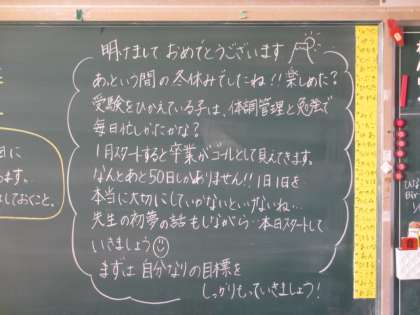 明けまして おめでとうございます
あっという間の冬休みでしたね!!楽しめた?
受験をひかえている子は、体調管理と勉強で
毎日忙しかったかな?
1月スタートすると卒業がゴールとして見えてきます。
なんとあと50日しかありません!!1日1日を
本当に大切にしていかないといけないね…
先生の初夢の話もしながら…本日スタートして
いきましょう
まずは自分なりの目標を
しっかりもっていきましょう!
日に
ます。
しておくこと。